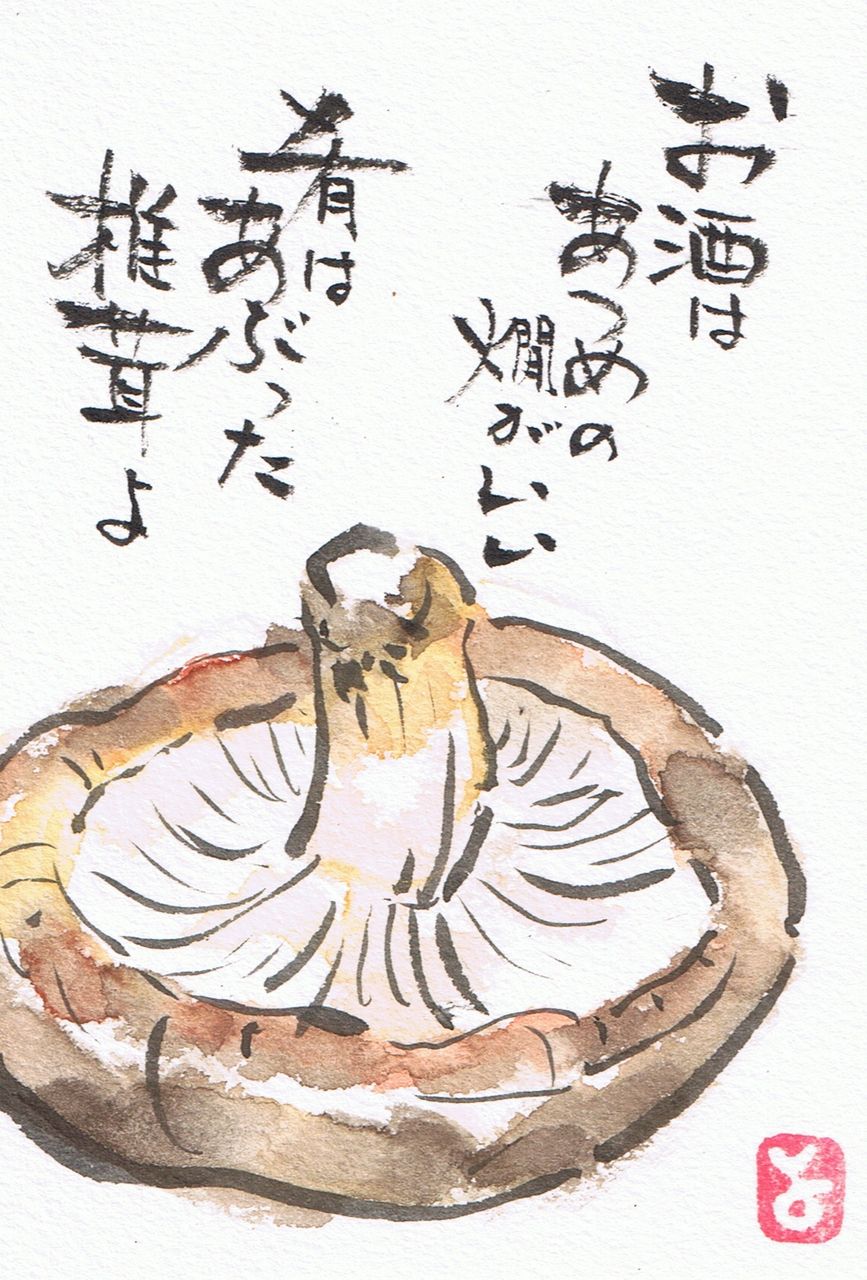 お酒は
あつめの
燗がいい
肴は
あぶった
椎茸よ